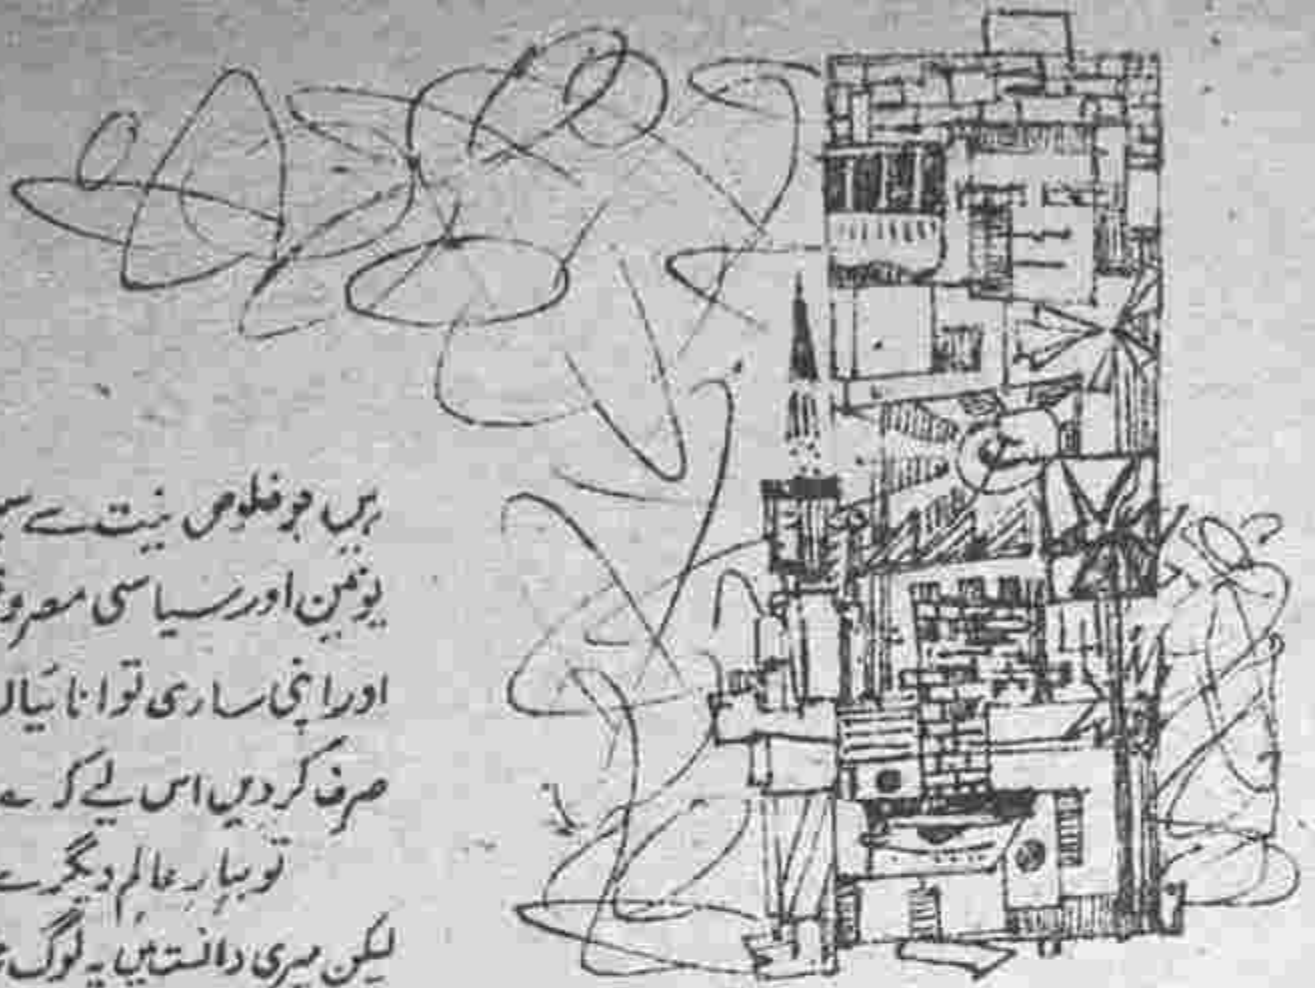 ہیں جو خلوص نیت سے
یونین اور سیاسی
اور اپنی ساری توانائیاں
صرف کر دیں اس لیے کہ
تو بہارِ عالمِ دیگرے
لیکن میری دانست میں یہ لوگ